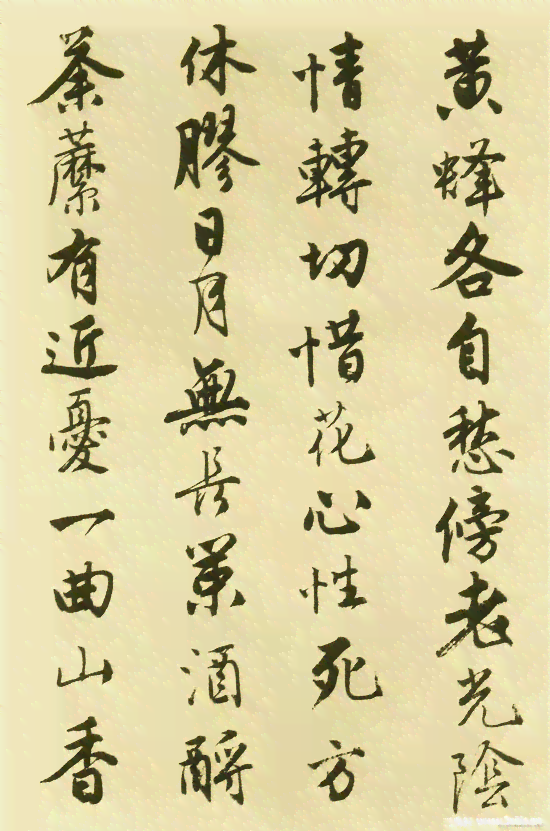 黃蜂各自愁傍老光陰
情轉切惜花心性死方
休膠日月無長策酒酹
荼䕷有近憂一曲山香